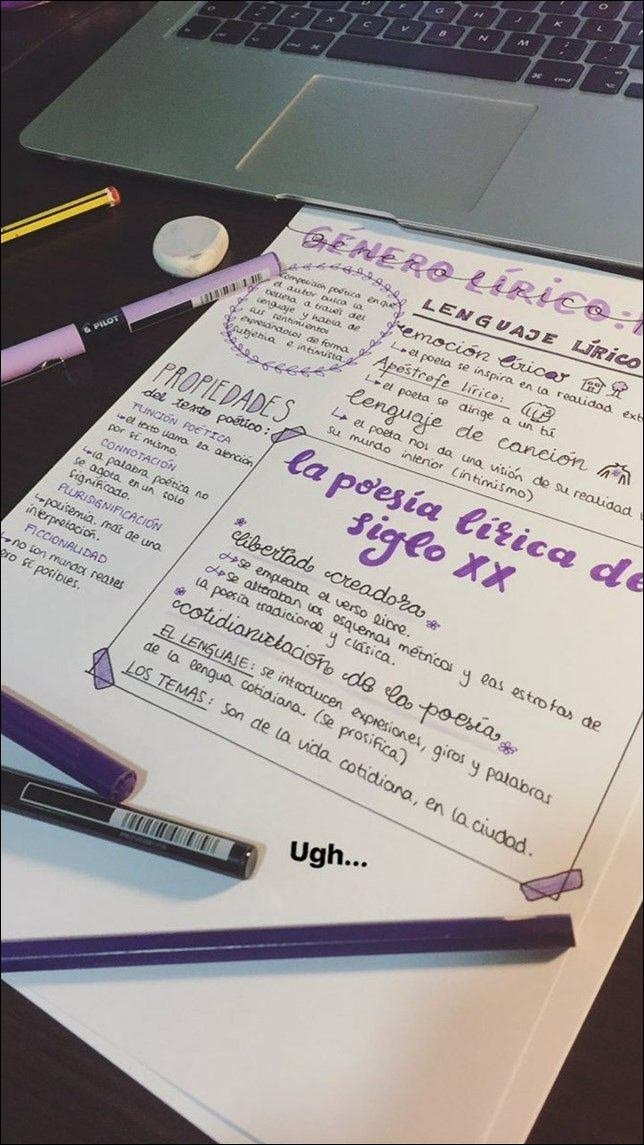 GÉNERO LÍRICO:
género lírico
composición poética en que
el autor busca la
belleza a través del
lenguaje y habla de
sus sentimientos
expresándolos de forma
subjetiva e intimista.
LENGUAJE LÍRICO
emoción lírica
↳ el poeta se inspira en la realidad
Apóstrofe lírico:
↳ el poeta se dirige a un tú
lenguaje de canción
↳ el poeta nos da una visión de su realidad
su mundo interior (intimismo)
PROPIEDADES
del texto poético:
FUNCIÓN POÉTICA
↳ el texto llama la atención
por sí mismo.
CONNOTACIÓN
↳ la palabra poética no
se agota en un solo
significado.
PLURISIGNIFICACIÓN
↳ polisemia. más de una
interpretación.
FICCIONALIDAD
↳ no son mundos reales
pero sí posibles.
la poesía lírica de
siglo XX
libertad creadora
se empleaba el verso libre.
se alteraban los esquemas métricos y las estrofas de
la poesía tradicional y clásica.
cotidianización de la poesía
EL LENGUAJE: se introducen expresiones, giros y palabras
de la lengua cotidiana. (se prosifica)
LOS TEMAS: son de la vida cotidiana, en la ciudad.
Ugh...
PILOT
Z X C V B N M
F G H J K L
cmd
cmd